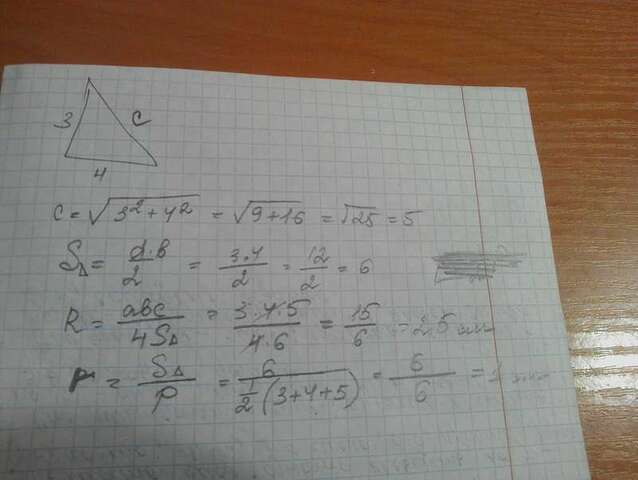 3 c
4
c = √(3²+4²) = √(9+16) = √25 = 5
S△ = a·b/2 = 3·4/2 = 12/2 = 6
R = abc/4S△ = 3·4·5/4·6 = 15/6 = 2,5 см
r = S△/p = 6/(1/2(3+4+5)) = 6/6 = 1